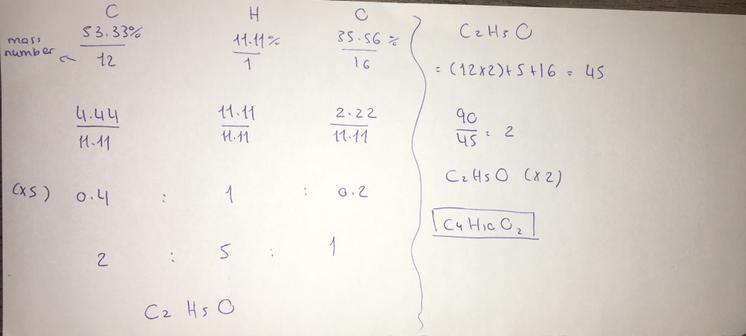 C H O
mass number 53.33% 11.11% 35.56%
12 1 16
4.44 11.11 2.22
11.11 11.11 11.11
(x5) 0.4 : 1 : 0.2
2 : 5 : 1
C2 H5 O
C2H5O
= (12x2)+5+16 = 45
90
45 = 2
C2H5O (x2)
C4H10O2